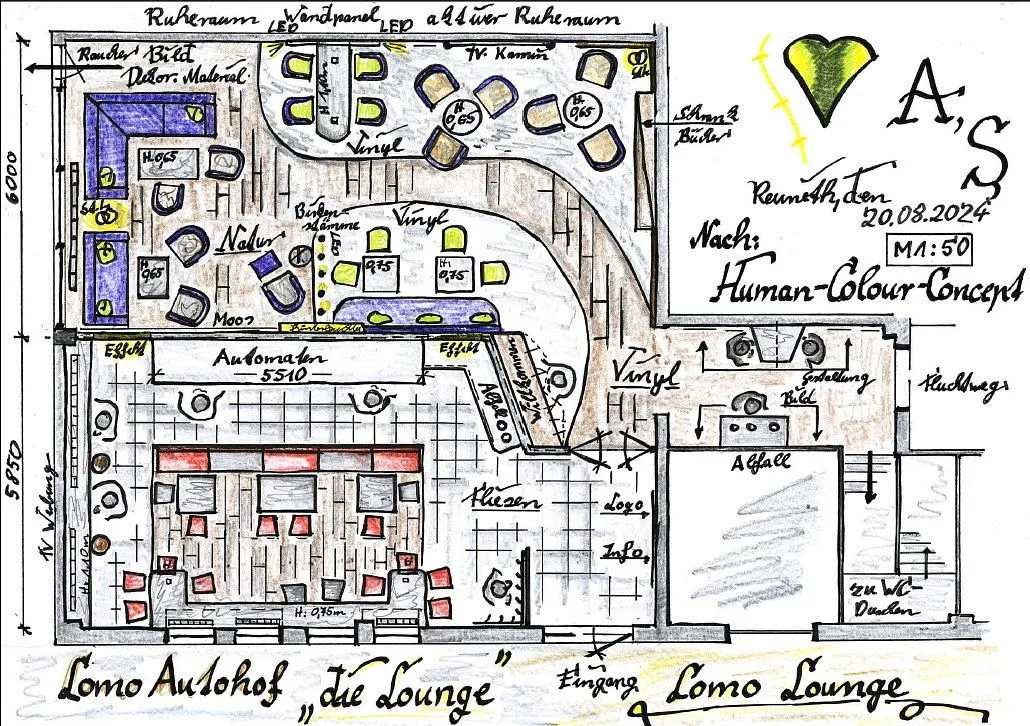 Ruheraum Wandpanel aktiver Ruheraum
LED LED
Raucher Bild
Dekor. Material
TV. Kamin
H: 0,65
H: 0,65
Vinyl
Schrank
Bücher
A, S
Reuneth, den
20.08.2024
M 1:50
Nach:
Human-Colour-Concept
6000
H: 0,65
Birken-
stämme
LED
Vinyl
Natur
0,65
H: 0,75
H: 0,75
Moos
Effekt
Effekt
Automaten
5510
Willkommen
Vinyl
Gestaltung
Bild
Fluchtweg
Abfall
5850
TV Werbung
H: 1,10m
Fliesen
Logo
Info
H: 0,75m
zu WC-
Duschen
Eingang
Lomo Autohof „die Lounge"
Lomo Lounge